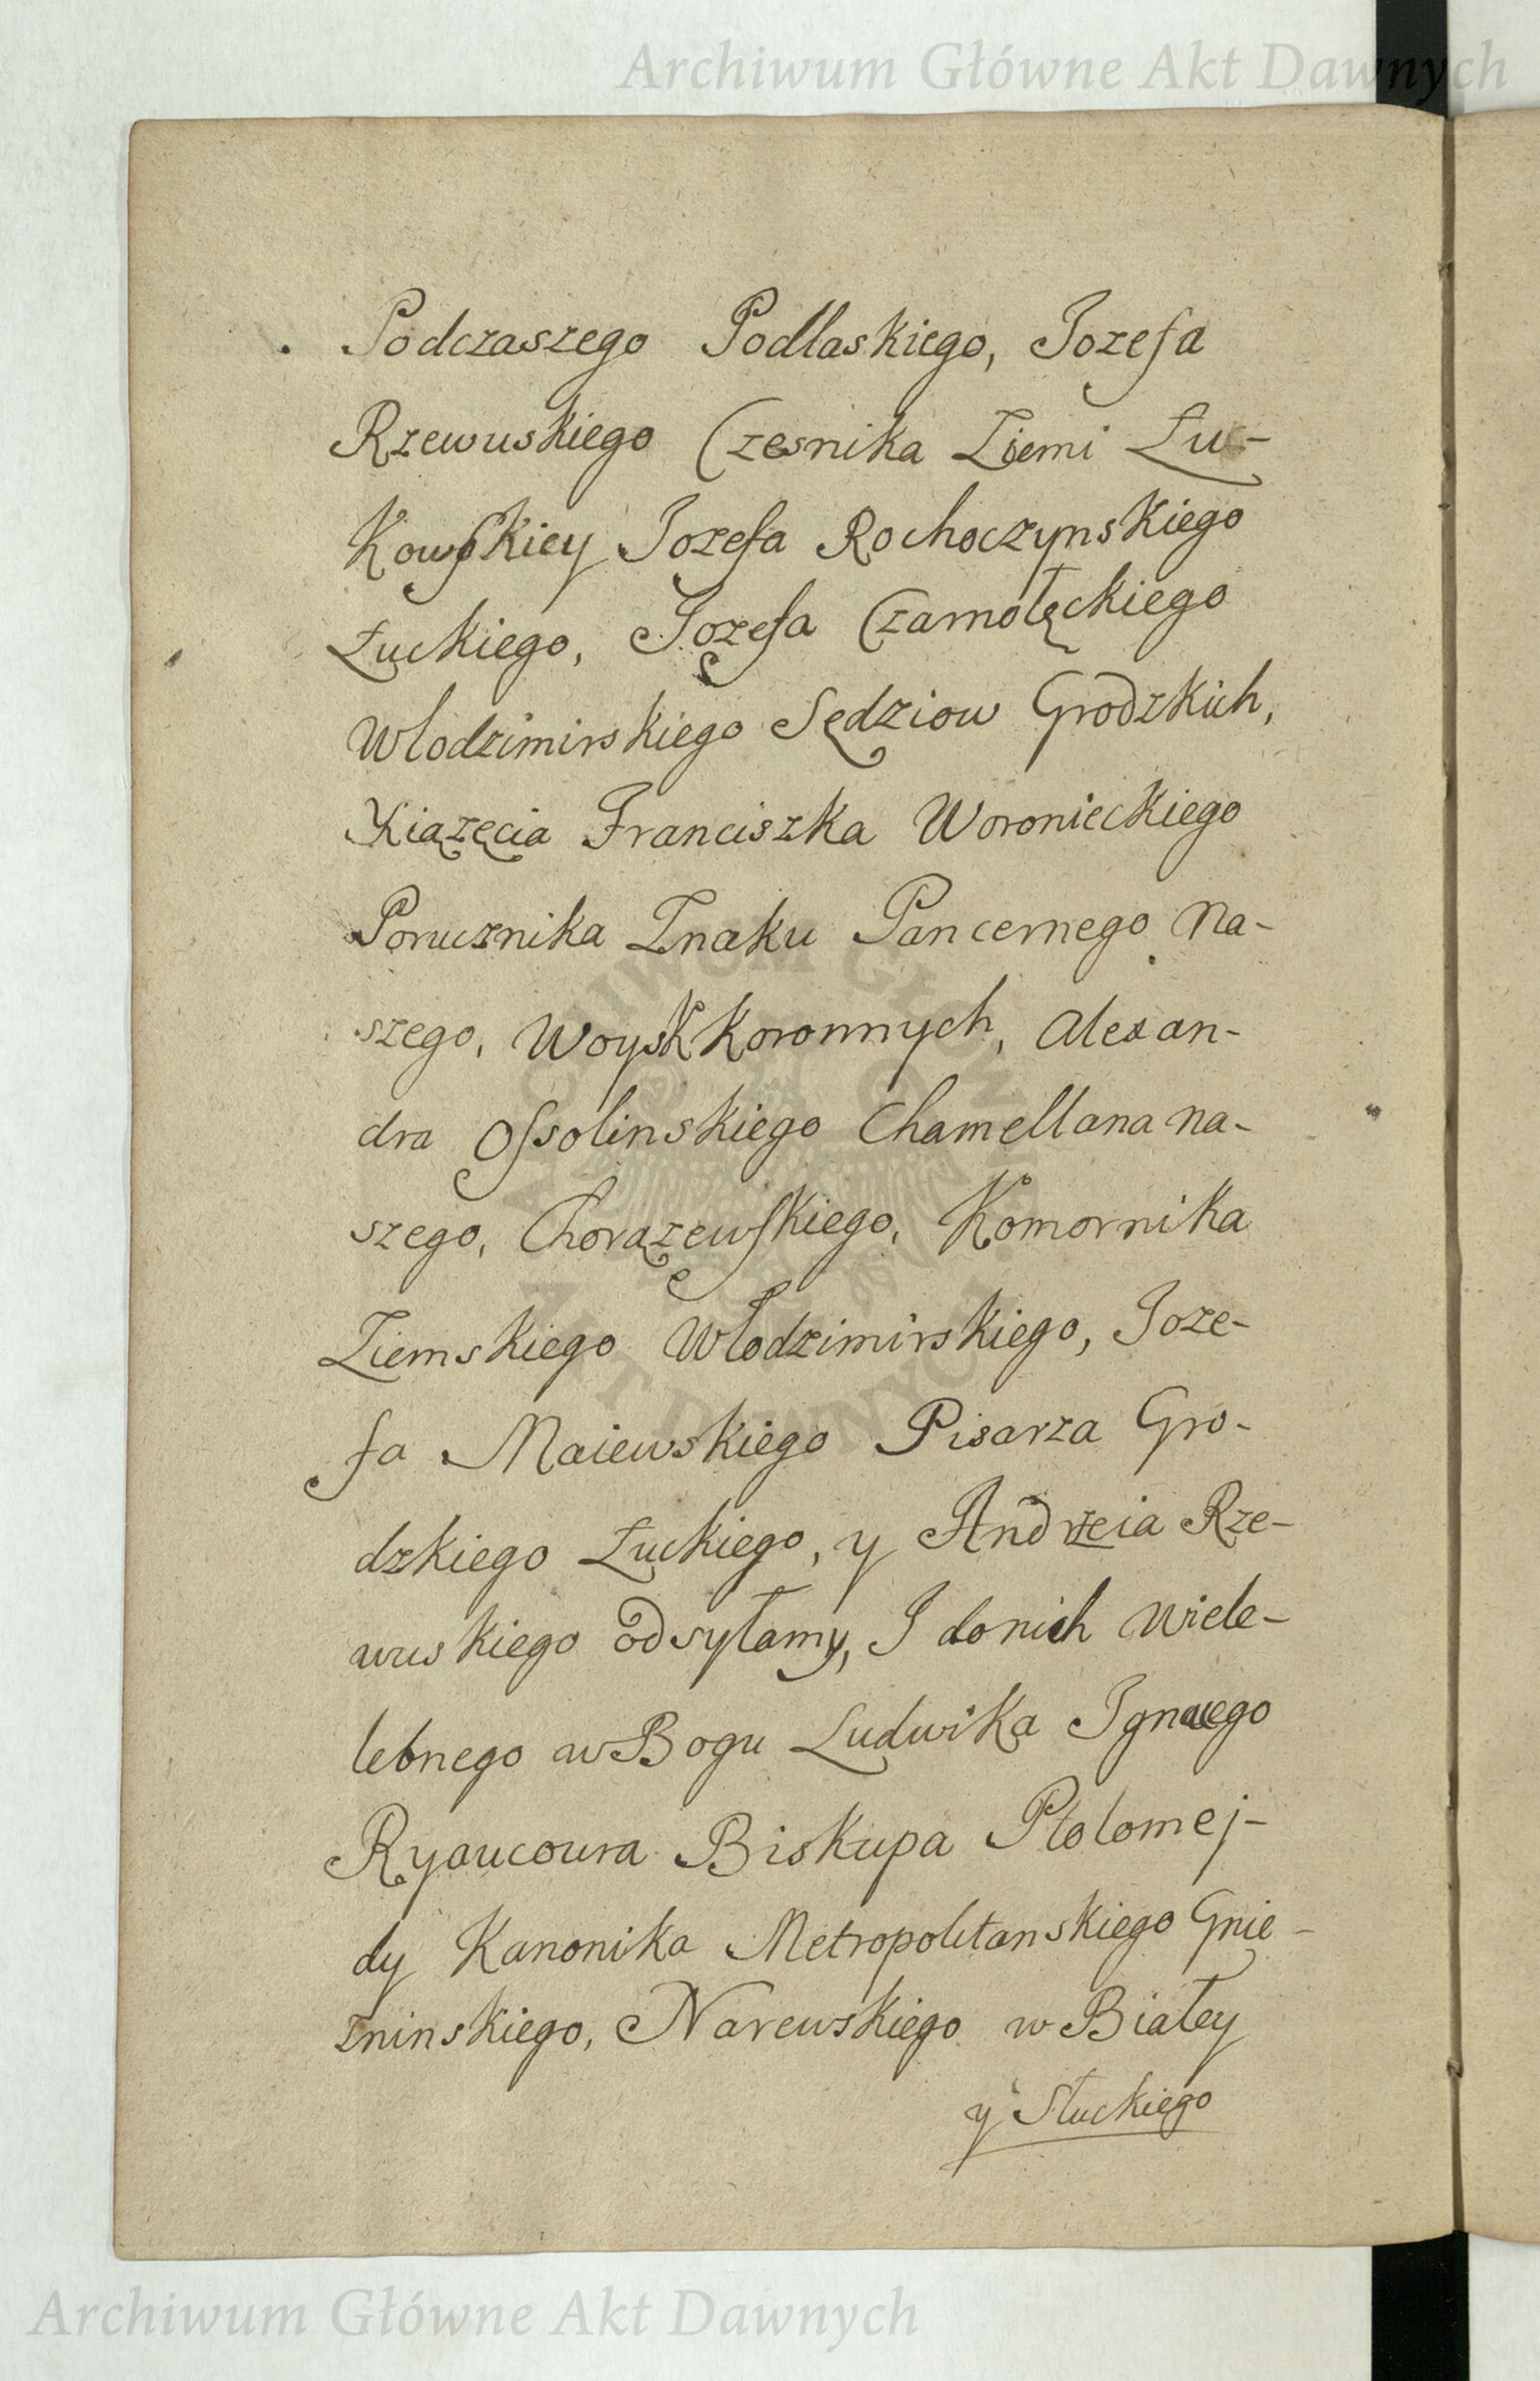 Archiwum Główne Akt Dawnych
Podczaszego Podlaskiego, Jozefa
Rzewuskiego Czesnika Ziemi Łu-
kowskiey Jozefa Rochoczynskiego
Łuckiego, Jozefa Czarnołęckiego
Włodzimirskiego Sędziow Grodzkich,
Xiążęcia Franciszka Woronieckiego
Porucznika Znaku Pancernego Na-
szego, Woysk Koronnych, Alexan-
dra Ossolinskiego Chamellana Na-
szego, Chorązewskiego, Komornika
Ziemskiego Włodzimirskiego, Joze-
fa Maiewskiego Pisarza Gro-
dzkiego Łuckiego, y Andrzeia Rze-
wuskiego odsyłamy, I do nich Wiele-
lebnego w Bogu Ludwika
Ryaucoura Biskupa Ptolomej-
dy Kanonika Metropolitanskiego Gnie-
zninskiego, Narewskiego w Białey
y Słuckiego
ARCHIWUM GŁÓWNE AKT DAWNYCH
Archiwum Główne Akt Dawnych